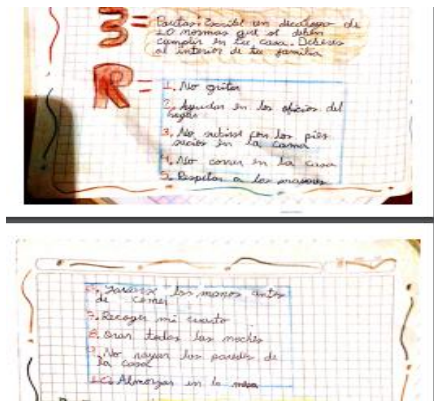 3= Pautas. Escribí un decálogo de
10 normas que se deben
cumplir en tu casa. Deberes
al interior de tu familia
R=
1. No gritar
2. Ayudar en los oficios del
hogar
3. No subirse con los pies
sucios en la cama
4. No correr en la casa
5. Respetar a los mayores
6. Lavarse las manos antes
de comer
7. Recoger mi cuarto
8. Orar todas las noches
9. No rayar las paredes de
la casa
10. Almorzar en la mesa